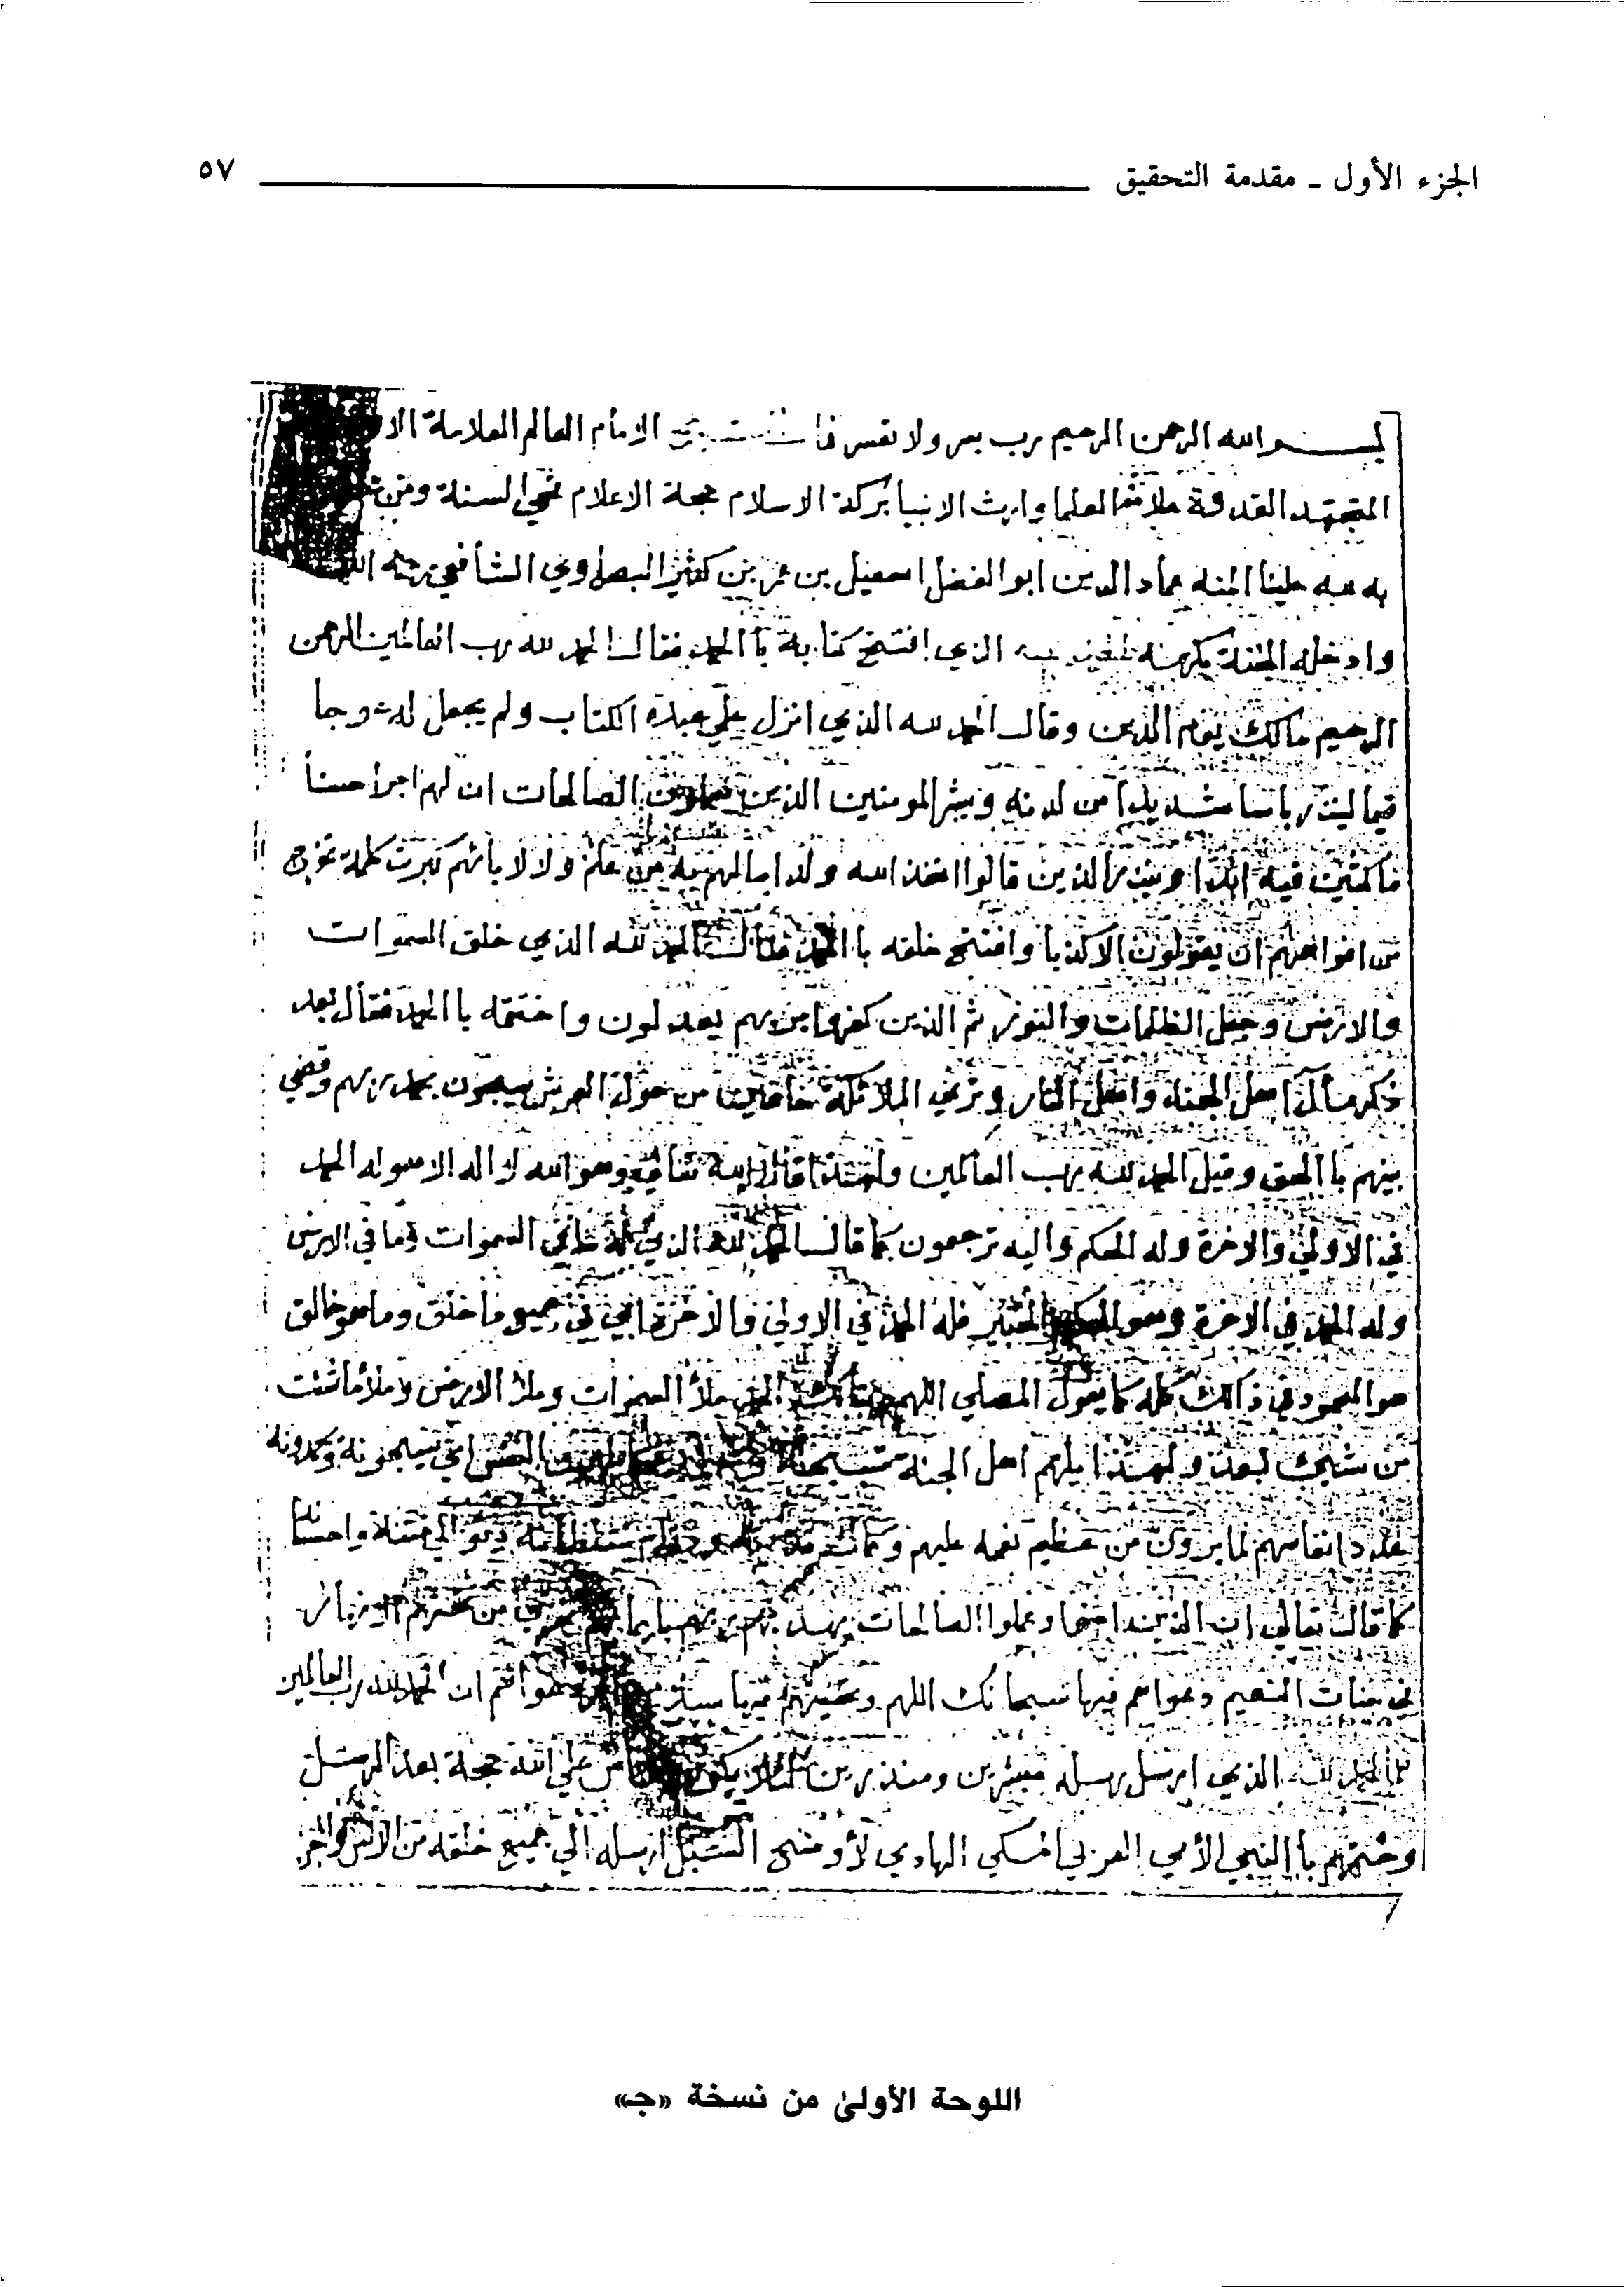 الجزء الأول ـ مقدمة التحقيق ٥٧
بسم الله الرحمن الرحيم رب يسر ولا تعسر الامام العالم العلامة
المجتهد القدوة العلما وارث الانبيا بركة الاسلام حجة الاعلام محي السنة ومن
به علينا المنه عماد الدين ابو الفضل اسمعيل بن عمر بن كثير البصراوي الشافعي
وادخله الجنة بكرمه الذي افتتح كتابه باالحمد فقال الحمد لله رب العالمين الرحمن
الرحيم مالك يوم الدين وقال الحمد لله الذي انزل علي عبده الكتاب ولم يجعل له عوجا
قيما لينذر باسا شديدا من لدنه ويبشر المومنين الذين يعملون الصالحات ان لهم اجرا حسنا
ماكثين فيه ابدا وينذر الذين قالوا اتخذ الله ولدا مالهم به من علم ولا لا بائهم كبرت كلمة تخرج
من افواههم ان يقولون الا كذبا وافتتح خلقه باالحمد فقال الحمد لله الذي خلق السموات
والارض وجعل الظلمات والنور ثم الذين كفروا بربهم يعدلون واختتمه باالحمد فقال بعد
ذكر مآل اهل الجنة واهل النار وتري الملائكة حافين من حول العرش يسبحون بحمد ربهم وقضي
بينهم باالحق وقيل الحمد لله رب العالمين ولهذا قال الله تعالي وهو الله لا اله الا هو له الحمد
في الاولي والاخرة وله الحكم واليه ترجعون كما قال الحمد لله الذي له ما في السموات وما في الارض
وله الحمد في الاخرة وهو الحكيم الخبير فله الحمد في الاولي والاخرة اي في جميع ما خلق وما هو خالق
هو المحمود في ذالك كله كما يقول المصلي اللهم ربنا لك الحمد ملأ السموات وملأ الارض وملأ ما شئت
من شيئ بعد ولهذا يلهم اهل الجنة تسبيحه النفس اي يسبحونه ويحمدونه
عدد انفاسهم لما يرون من عظيم نعمه عليهم
كما قال تعالي ان الذين امنوا وعملوا الصالحات يهديهم ربهم بايمانهم تجري من تحتهم الانهار
في جنات النعيم دعواهم فيها سبحانك اللهم وتحيتهم فيها سلام دعواهم ان الحمد لله رب العالمين
الحمد لله الذي ارسل رسله مبشرين ومنذرين لئلا يكون للناس علي الله حجة بعد الرسل
وختمهم باالنبي الأمي العربي المكي الهادي لأوضح السبل ارسله الي جميع خلقه من الانس والجن
اللوحة الأولىٰ من نسخة «جـ»